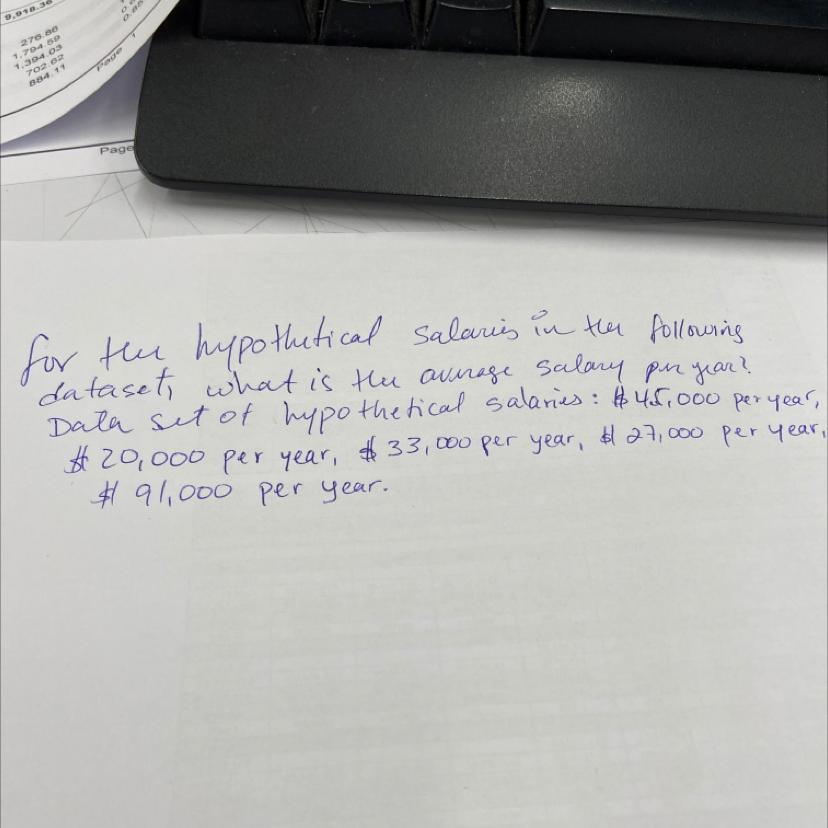 9,918.36
276.86
1,794.59
1,394.03
702.62
884.11
Page 1
Page
for the hypothetical salaries in the following
dataset, what is the average salary per year?
Data set of hypothetical salaries: $45,000 per year,
$20,000 per year, $33,000 per year, $27,000 per year,
$91,000 per year.